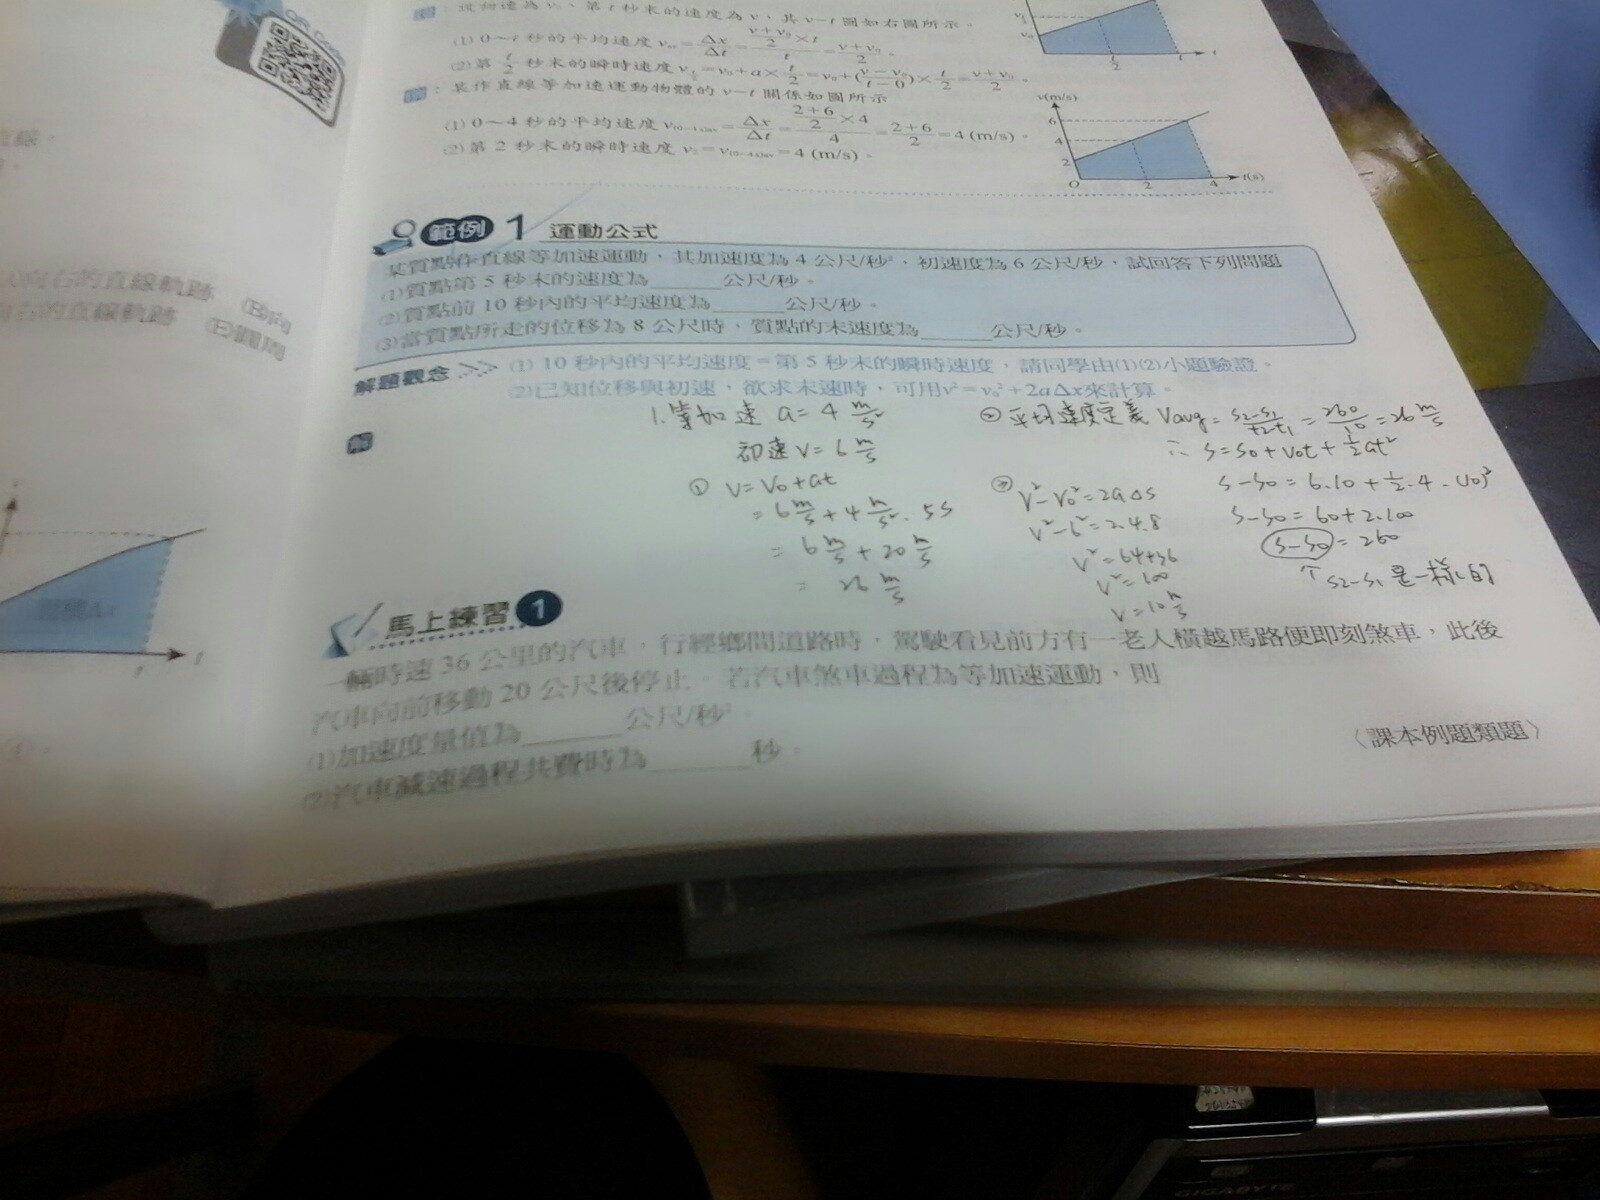 QR Code
例：設初速為 v₀、第 t 秒末的速度為 v，其 v-t 圖如右圖所示。
(1) 0～t 秒的平均速度 = Δx/Δt = ((v+v₀)/2 × t)/t = (v+v₀)/2。
(2)第 t/2 秒末的瞬時速度 = v₀+a× t/2 = v₀+((v-v₀)/(t-0))× t/2 = (v+v₀)/2。
：某作直線等加速運動物體的 v-t 關係如圖所示
(1) 0～4 秒的平均速度 = Δx/Δt = ((2+6)/2 ×4)/4 = (2+6)/2 = 4 (m/s)。
(2)第 2 秒末的瞬時速度 v₂ = = 4 (m/s)。
t/2 t
v(m/s)
6
4
2
O 2 4 t(s)
範例 1 運動公式
某質點作直線等加速運動，其加速度為 4 公尺/秒²，初速度為 6 公尺/秒，試回答下列問題
(1)質點第 5 秒末的速度為______公尺/秒。
(2)質點前 10 秒內的平均速度為______公尺/秒。
(3)當質點所走的位移為 8 公尺時，質點的末速度為______公尺/秒。
解題觀念 >>> (1) 10 秒內的平均速度＝第 5 秒末的瞬時速度，請同學由(1)(2)小題驗證。
(2)已知位移與初速，欲求末速時，可用v²＝v₀²＋2aΔx來計算。
解
1. 等加速 a = 4 m/s²
初速 v = 6 m/s
① v = v₀+at
= 6 m/s + 4 m/s² · 5s
= 6 m/s + 20 m/s
= 26 m/s
② 平均速度定義 Vavg = (s2-s1)/(t2-t1) = 260/10 = 26 m/s
∴ s = s0 + v0t + ½at²
s-s0 = 6·10 + ½·4·(10)²
s-s0 = 60+2·100
s-s0 = 260
↑ s2-s1 是一樣的
③ v²-v₀² = 2aΔs
v²-6² = 2·4·8
v² = 64+36
v² = 100
v = 10 m/s
馬上練習 1
一輛時速 36 公里的汽車，行經鄉間道路時，駕駛看見前方有一老人橫越馬路便即刻煞車，此後
汽車向前移動 20 公尺後停止。若汽車煞車過程為等加速運動，則
(1)加速度量值為______公尺/秒²。
(2)汽車減速過程共費時為______秒。
〈課本例題類題〉
直線，
向右的直線軌跡 (B)向
向右的直線軌跡 (E)圓周
t t
GIGABYTE